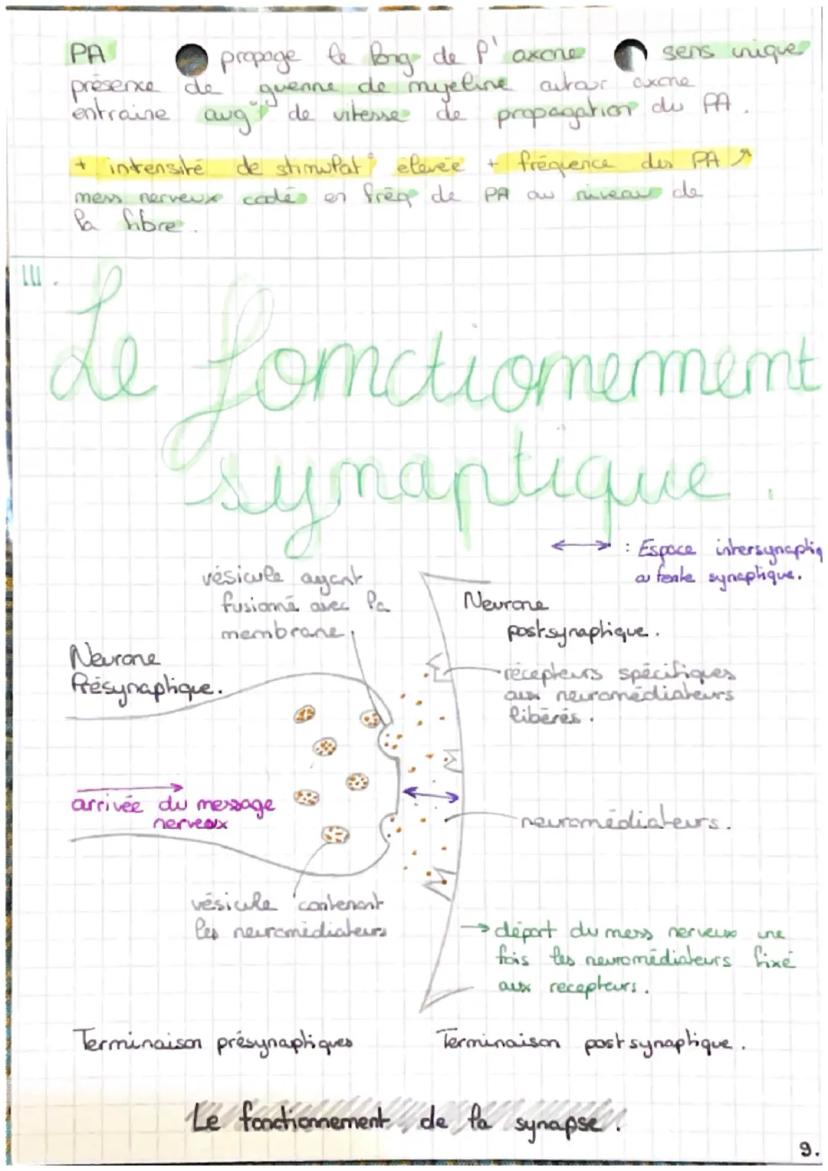 PA propage le long de l'axone sens unique
présence de guenne de myeline autour axone
entraine augº de vitesse de propagation du PA.
+ intensité de stimulatº élevée + fréquence des PA ↗
mess nerveux codé en fréq de PA au niveau de
la fibre.
III.
Le fonctionnement
synaptique.
↔ : Espace intersynaptiq
ou fente synaptique.
vésicule ayant
fusionné avec la
membrane
Neurone
postsynaptique.
Neurone
Présynaptique.
récepteurs spécifiques
aux neuromédiateurs
libérés.
arrivée du message
nerveux
neuromédiateurs.
vésicule contenant
les neuromédiateurs
→ départ du mess nerveux une
fois les neuromédiateurs fixé
aux recepteurs.
Terminaison présynaptiques
Terminaison postsynaptique.
Le fonctionnement de la synapse.
9.